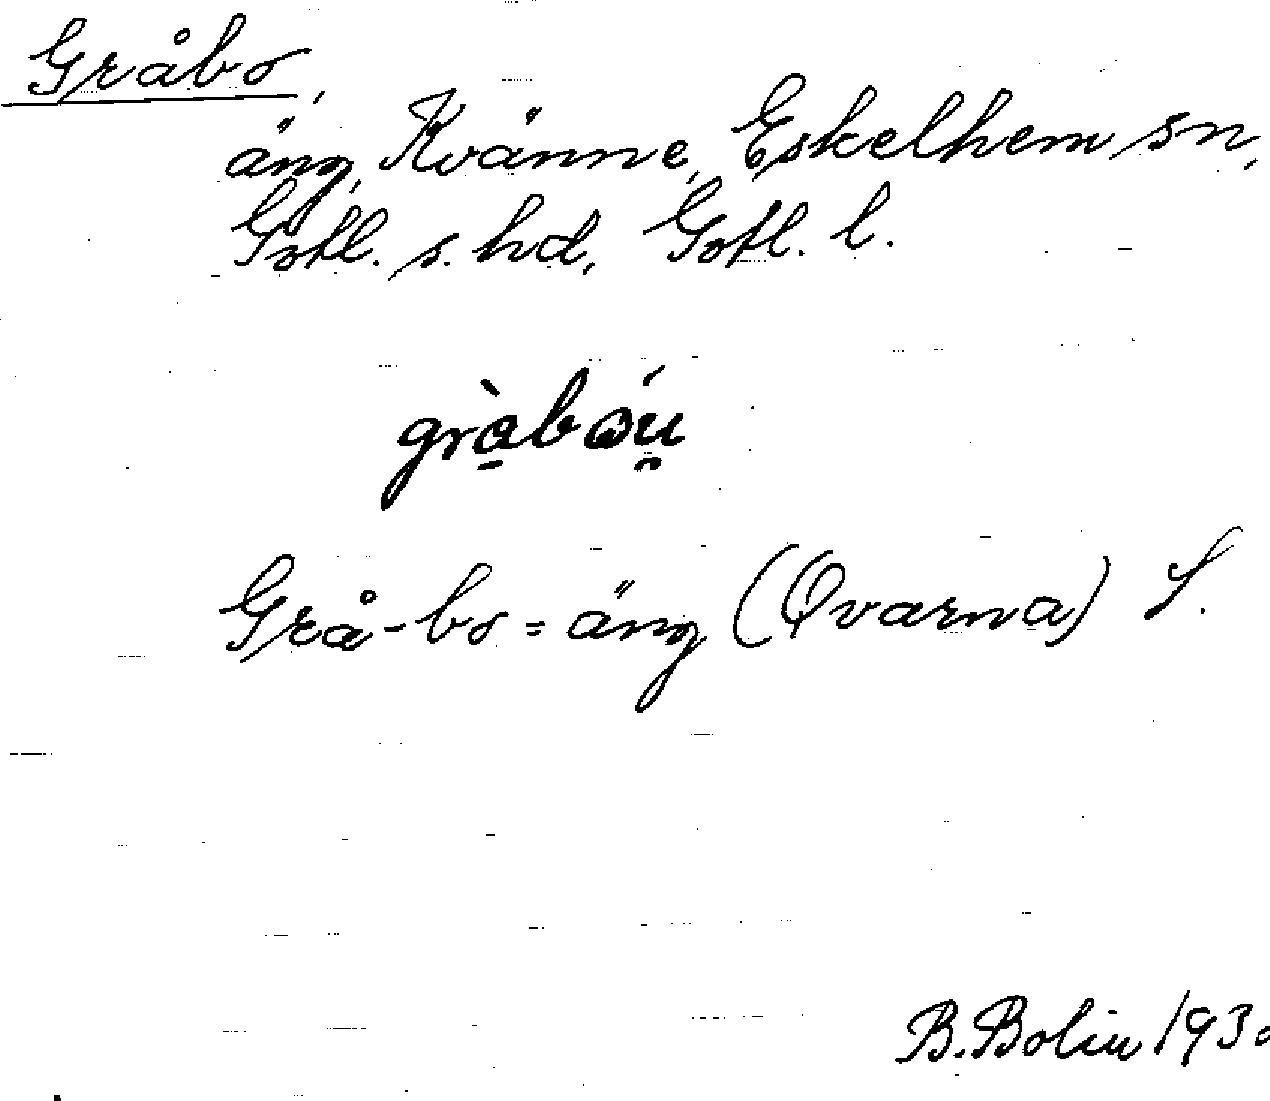 Gråbo,
äng, Kvänne, Eskelhem sn,
Gotl. s. hd, Gotl. l.
Grå-bo=äng (Qvarna) S.
B. Bolin 1930